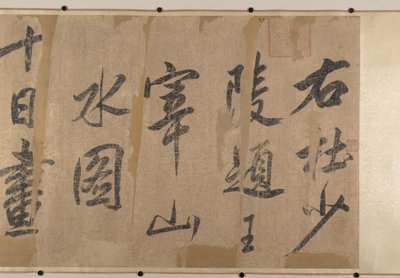 右杜少
陵題王
宰山
水图
十日畫